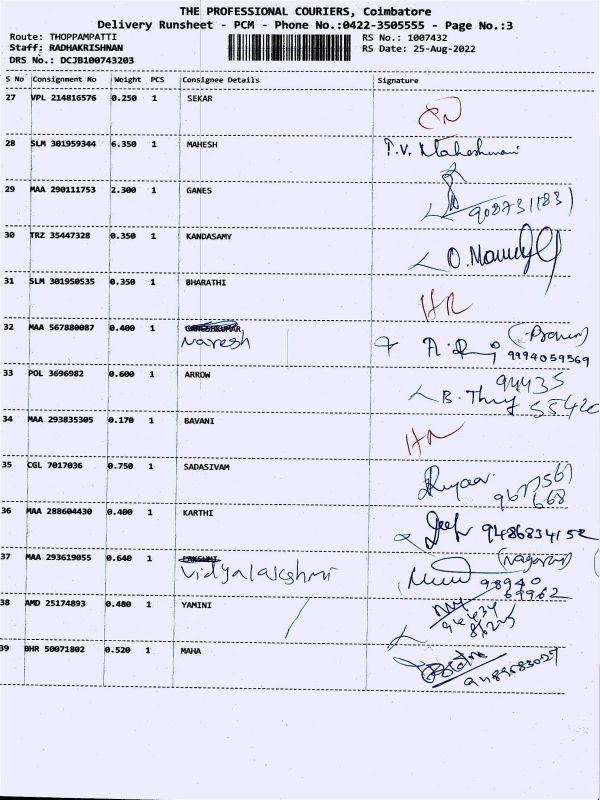 THE PROFESSIONAL COURIERS, Coimbatore
Delivery Runsheet - PCM - Phone No.:0422-3505555 - Page No.:3
Route: THOPPAMPATTI RS No.: 1007432
Staff: RADHAKRISHNAN RS Date: 25-Aug-2022
DRS No.: DCJB100743203
S No Consignment No Weight PCS Consignee Details Signature
27 VPL 214816576 0.250 1 SEKAR
28 SLM 301959344 6.350 1 MAHESH T.V. Maheshwari
29 MAA 290111753 2.300 1 GANES
30 TRZ 35447328 0.350 1 KANDASAMY
31 SLM 301950535 0.350 1 BHARATHI
32 MAA 567880087 0.400 1 GANESHKUMAR
Naresh 9994059569
33 POL 3696982 0.600 1 ARROW 94435
B. 55420
34 MAA 293835305 0.170 1 BAVANI
35 CGL 7017036 0.750 1 SADASIVAM
36 MAA 288604430 0.400 1 KARTHI 9486834152
37 MAA 293619055 0.640 1 LAKSHMI
Vidyalakshmi 98940
69962
38 AMD 25174893 0.480 1 YAMINI
39 BHR 50071802 0.520 1 MAHA